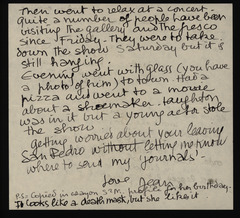 Then went to relax at a concert.
Quite a number of people have been
visiting the gallery and the fresco
since Friday. They were to take
down the show Saturday but it is
still hanging.
Evening went with Glass (you have
a photo of him) to town. Had a
pizza and went to a movie
about a shoemaker. Laughton
was in it but a young actor stole
the show.
Getting worried about your leaving
San Pedro without letting me know
where to send my journals!
Love Jean
P.S. Copied in crayon people for her birthday.
It looks like a death mask, but she likes it